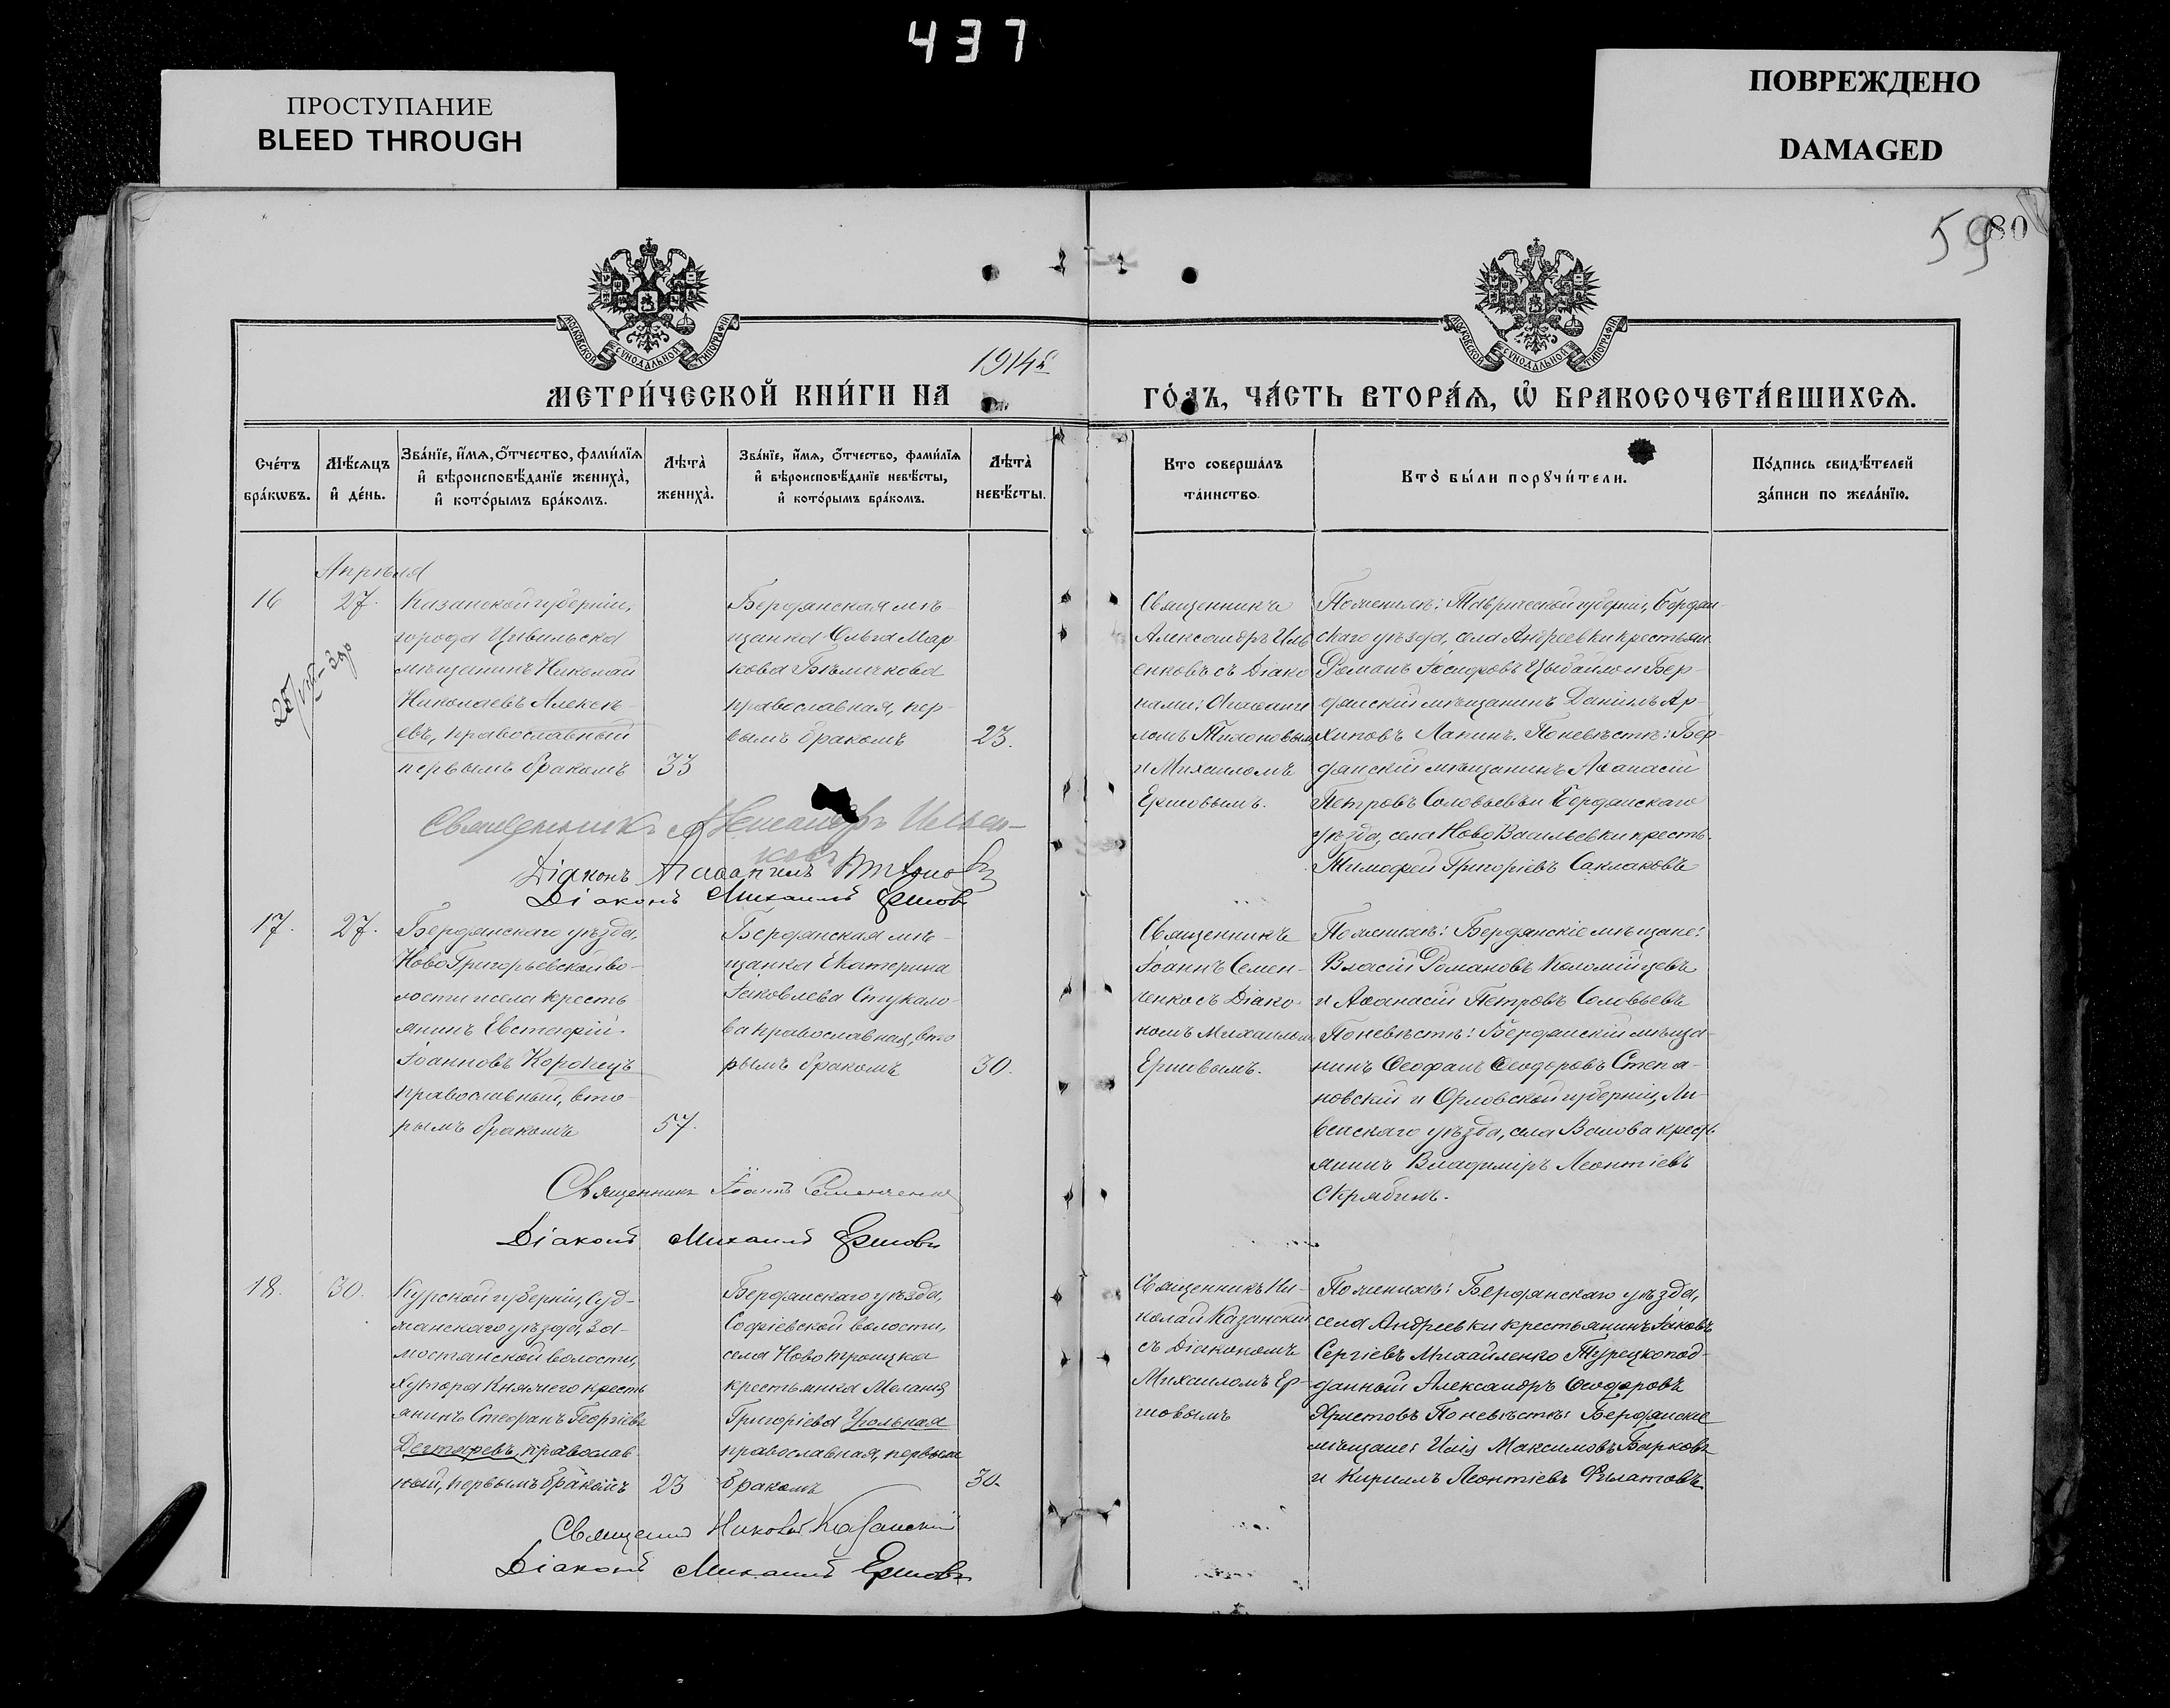 437
ПРОСТУПАНИЕ
BLEED THROUGH
ПОВРЕЖДЕНО
DAMAGED
59
80
МОСКОВСКОЙ СУНОДАЛЬНОЙ ТИПОГРАФІИ
МОСКОВСКОЙ СУНОДАЛЬНОЙ ТИПОГРАФІИ
МЕТРИ́ЧЕСКОЙ КНИ́ГИ НА 1914 г. ГО́ДЪ, ЧА́СТЬ ВТОРА́Ѧ, Ѽ БРАКОСОЧЕТА́ВШИХСѦ.
Сче́тъ
бра́кѡвъ.
Мѣ́сяцъ
и҆ де́нь.
Зва́нїе, и҆́мѧ, ѻ҆́тчество, фами́лїѧ
и҆ вѣроисповѣ́данїе жениха̀,
и҆ кото́рымъ бра́комъ.
Лѣта̀
жениха̀.
Зва́нїе, и҆́мѧ, ѻ҆́тчество, фами́лїѧ
и҆ вѣроисповѣ́данїе невѣ́сты,
и҆ кото́рымъ бра́комъ.
Лѣта̀
невѣ́сты.
Кто совершáлъ
тáинство.
Кто̀ бы́ли порꙋчи́тели.
По́дпись свидѣ́телей
за́писи по жела́нїю.
Апрѣля
16
27.
Казанской губерніи,
города Цивильска
мѣщанинъ Николай
Николаевъ Алексѣ-
евъ, православный
первымъ бракомъ
33
Бердянская мѣ-
щанка Ольга Мар
кова Бѣличкова
православная, пер-
вымъ бракомъ
23.
Священникъ
Александръ Иль
енковъ съ Діако
нами: Агаѳанге
ломъ Тихоновым
и Михаиломъ
Ершовымъ.
По женихѣ: Таврической губерніи, Бердян-
скаго уѣзда, села Андреевки крестьян.
Романъ Іосифовъ Цыбайло и Бер-
дянскій мѣщанинъ Даніилъ Ар-
хиповъ Лапинъ. По невѣстѣ: Бер-
дянскій мѣщанинъ Аѳанасій
Петровъ Соловьевъ и Бердянскаго
уѣзда, села Ново Васильевки кресть.
Тимофей Григоріевъ Саклаковъ
Священникъ Александръ Ильен-
ковъ
Діаконъ Агаѳангелъ Тихоновъ
Діаконъ Михаилъ Ершовъ
17.
27.
Бердянскаго уѣзда,
Ново Григорьевской во-
лости и села кресть
янинъ Евстафій
Іоанновъ Коропецъ
православный, вто-
рымъ бракомъ
57.
Бердянская мѣ-
щанка Екатерина
Іаковлева Стукало-
ва православная, вто
рымъ бракомъ
30.
Священникъ
Іоаннъ Семен-
ченко съ Діако-
номъ Михаиломъ
Ершовымъ.
По женихѣ: Бердянскіе мѣщане:
Власій Романовъ Коломійцевъ
и Аѳанасій Петровъ Соловьевъ
По невѣстѣ: Бердянскій мѣща-
нинъ Ѳеофанъ Ѳеодоровъ Степа-
новскій и Орловской губерніи, Ли-
венскаго уѣзда, села Волова кресть
янинъ Владиміръ Леонтіевъ
Скрябинъ.
Священникъ Іоаннъ Семенченко
Діаконъ Михаилъ Ершовъ
18.
30.
Курской губерніи, Суд-
жанскаго уѣзда, За-
мостянской волости,
хутора Княжего кресть
янинъ Стефанъ Георгіевъ
Дегтяревъ, православ-
ный, первымъ бракомъ
23
Бердянскаго уѣзда,
Софіевской волости,
села Ново Троицка
крестьянка Меланія
Григоріева Угольная
православная, первымъ
бракомъ
30.
Священникъ Ни-
колай Казанскій
съ Діакономъ
Михаиломъ Ер-
шовымъ
По женихѣ: Бердянскаго уѣзда,
села Андреевки крестьянинъ Іаковъ
Сергіевъ Михайленко Турецкопод-
данный Александръ Ѳеодоровъ
Христовъ По невѣстѣ: Бердянскіе
мѣщане: Илія Максимовъ Барковъ
и Кириллъ Леонтіевъ Филатовъ
Священникъ Николай Казанскій
Діаконъ Михаилъ Ершовъ